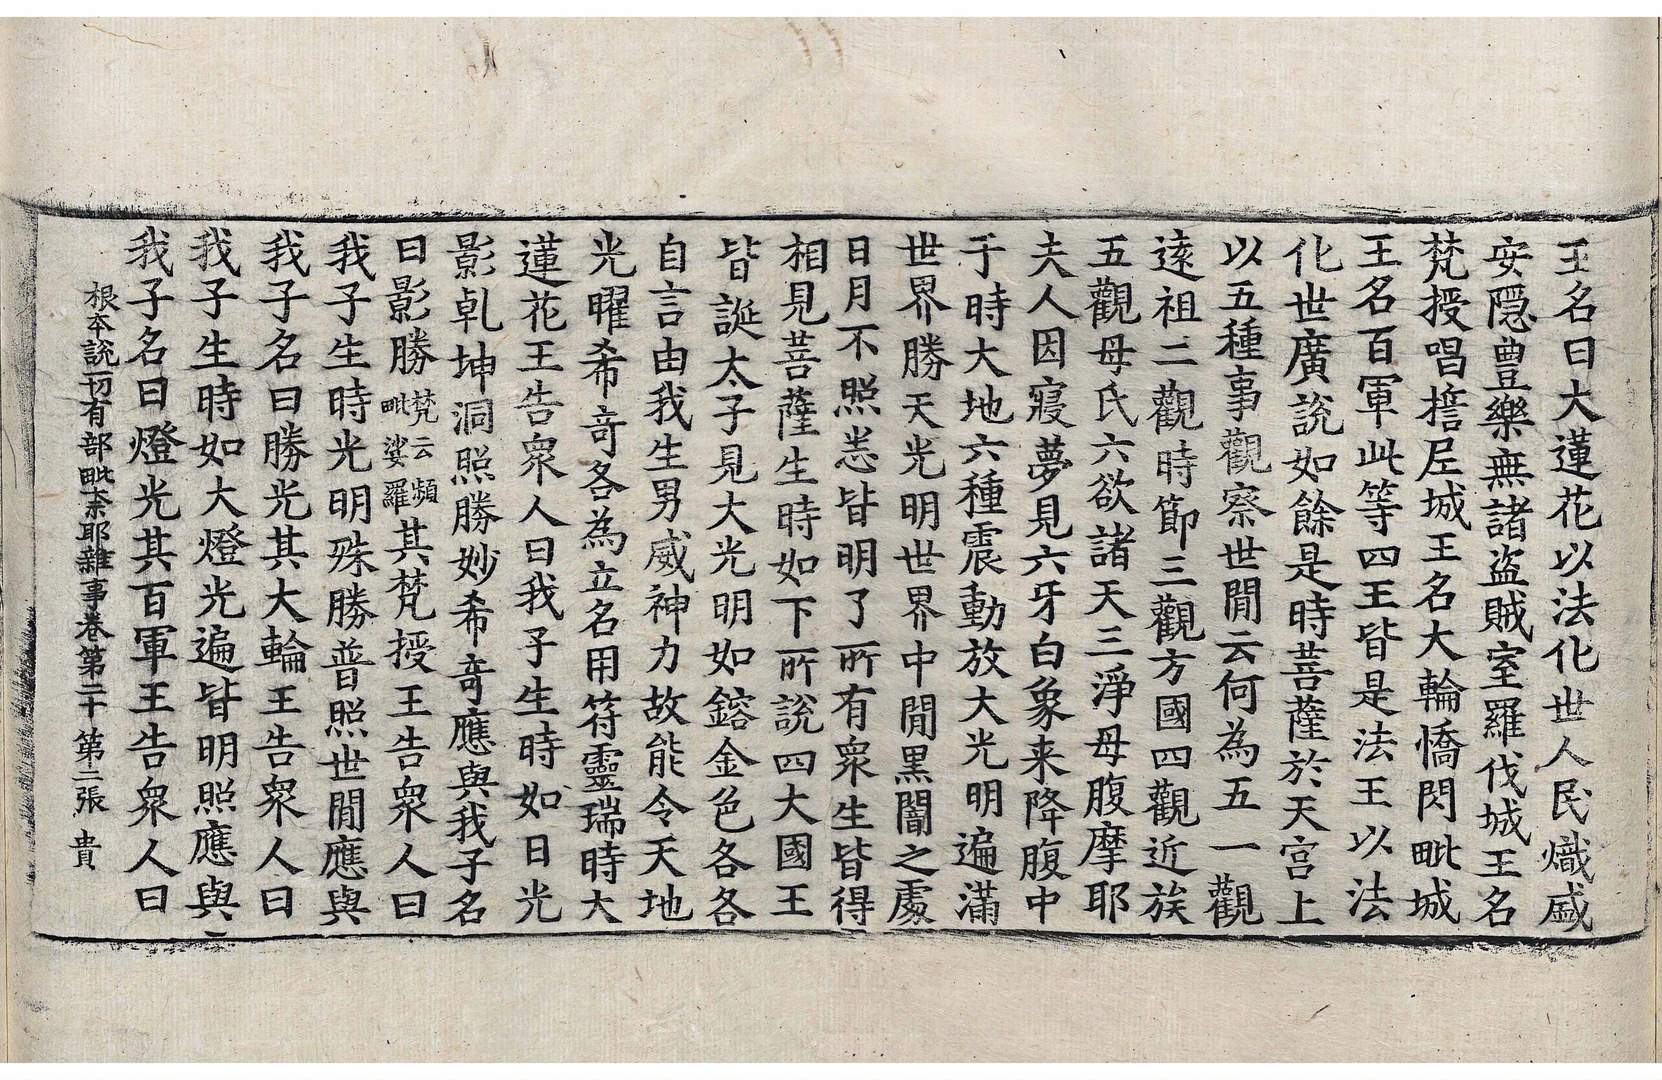 王名曰大蓮花以法化世人民熾盛
安隱豊樂無諸盜賊室羅伐城王名
梵授唱誓尼城王名大輪憍閃毗城
王名百軍此等四王皆是法王以法
化世廣說如餘是時菩薩於天宮上
以五種事觀察世閒云何為五一觀
遠祖二觀時節三觀方國四觀近族
五觀母氏六欲諸天三淨母腹摩耶
夫人因寢夢見六牙白象来降腹中
于時大地六種震動放大光明遍滿
世界勝天光明世界中閒黒闇之處
日月不照悉皆明了所有衆生皆得
相見菩薩生時如下所說四大國王
皆誕太子見大光明如鎔金色各各
自言由我生男威神力故能令天地
光曜希奇各為立名用符靈瑞時大
蓮花王告衆人曰我子生時如日光
影乹坤洞照勝妙希奇應與我子名
曰影勝梵云頻毗娑羅其梵授王告衆人曰
我子生時光明殊勝普照世閒應與
我子名曰勝光其大輪王告衆人曰
我子生時如大燈光遍皆明照應與
我子名曰燈光其百軍王告衆人曰
根本說一切有部毗柰耶雜事卷第二十 第二張 貴